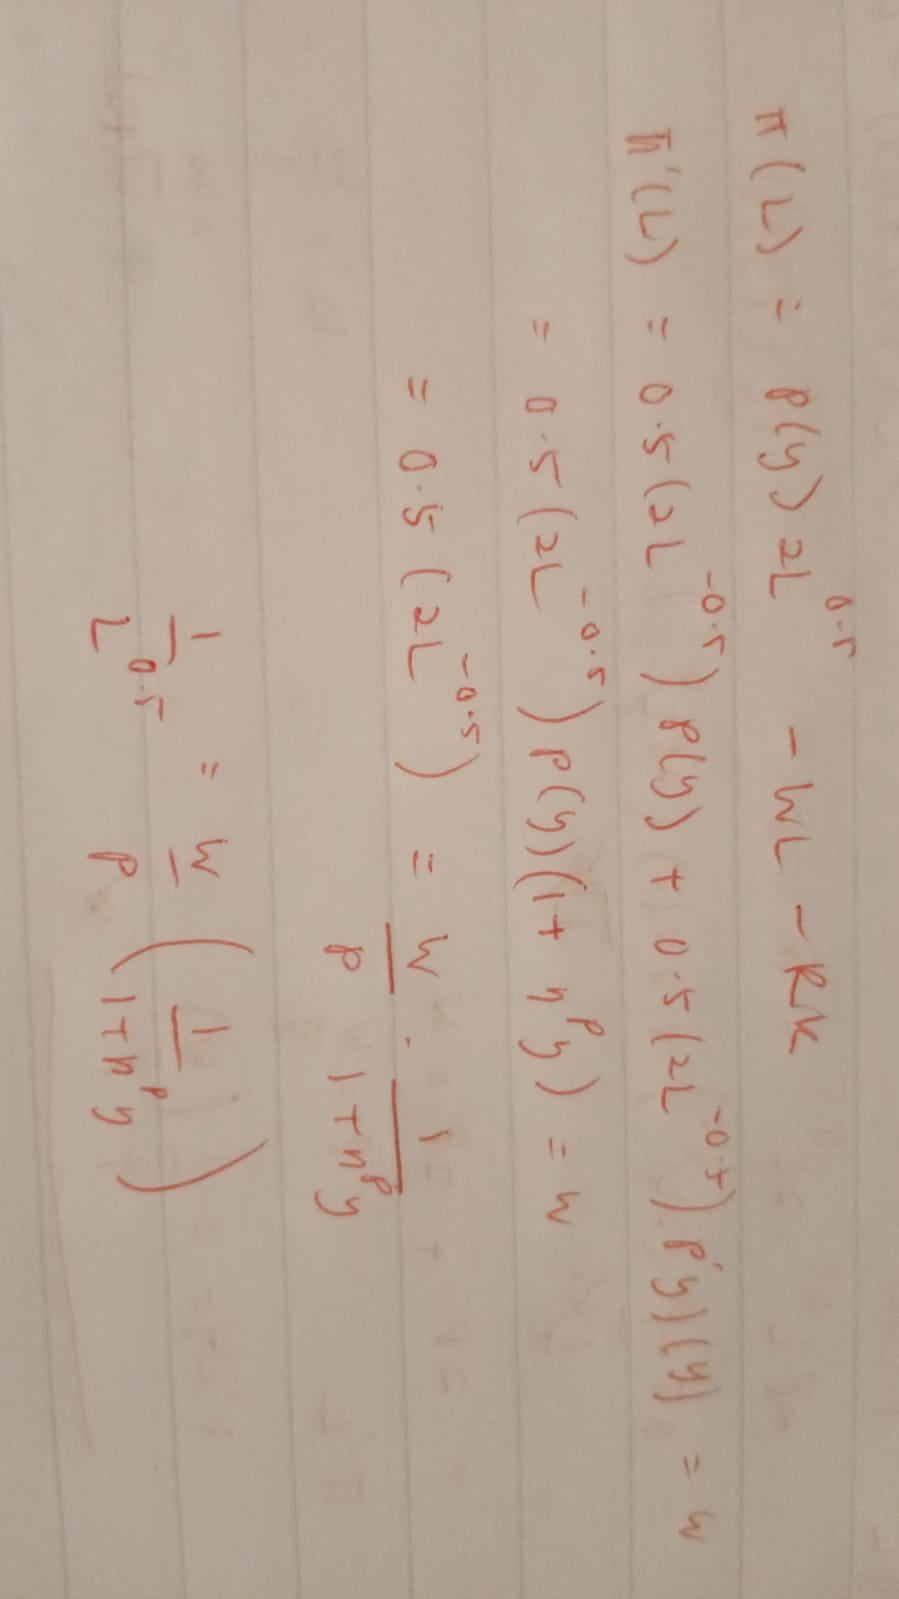 π(L) = P(y) 2L^0.5 - WL - RK
π'(L) = 0.5(2L^-0.5) P(y) + 0.5(2L^-0.5) P'y)(y) = W
= 0.5(2L^-0.5) P(y)(1 + η^P y) = W
= 0.5(2L^-0.5) = W/P · 1/1+η^P y
1/L^0.5 = W/P (1/1+η^P y)